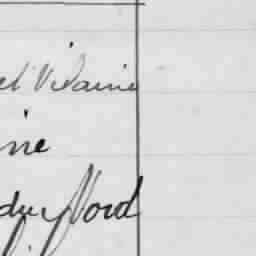 et Vilaine
ine
du Nord